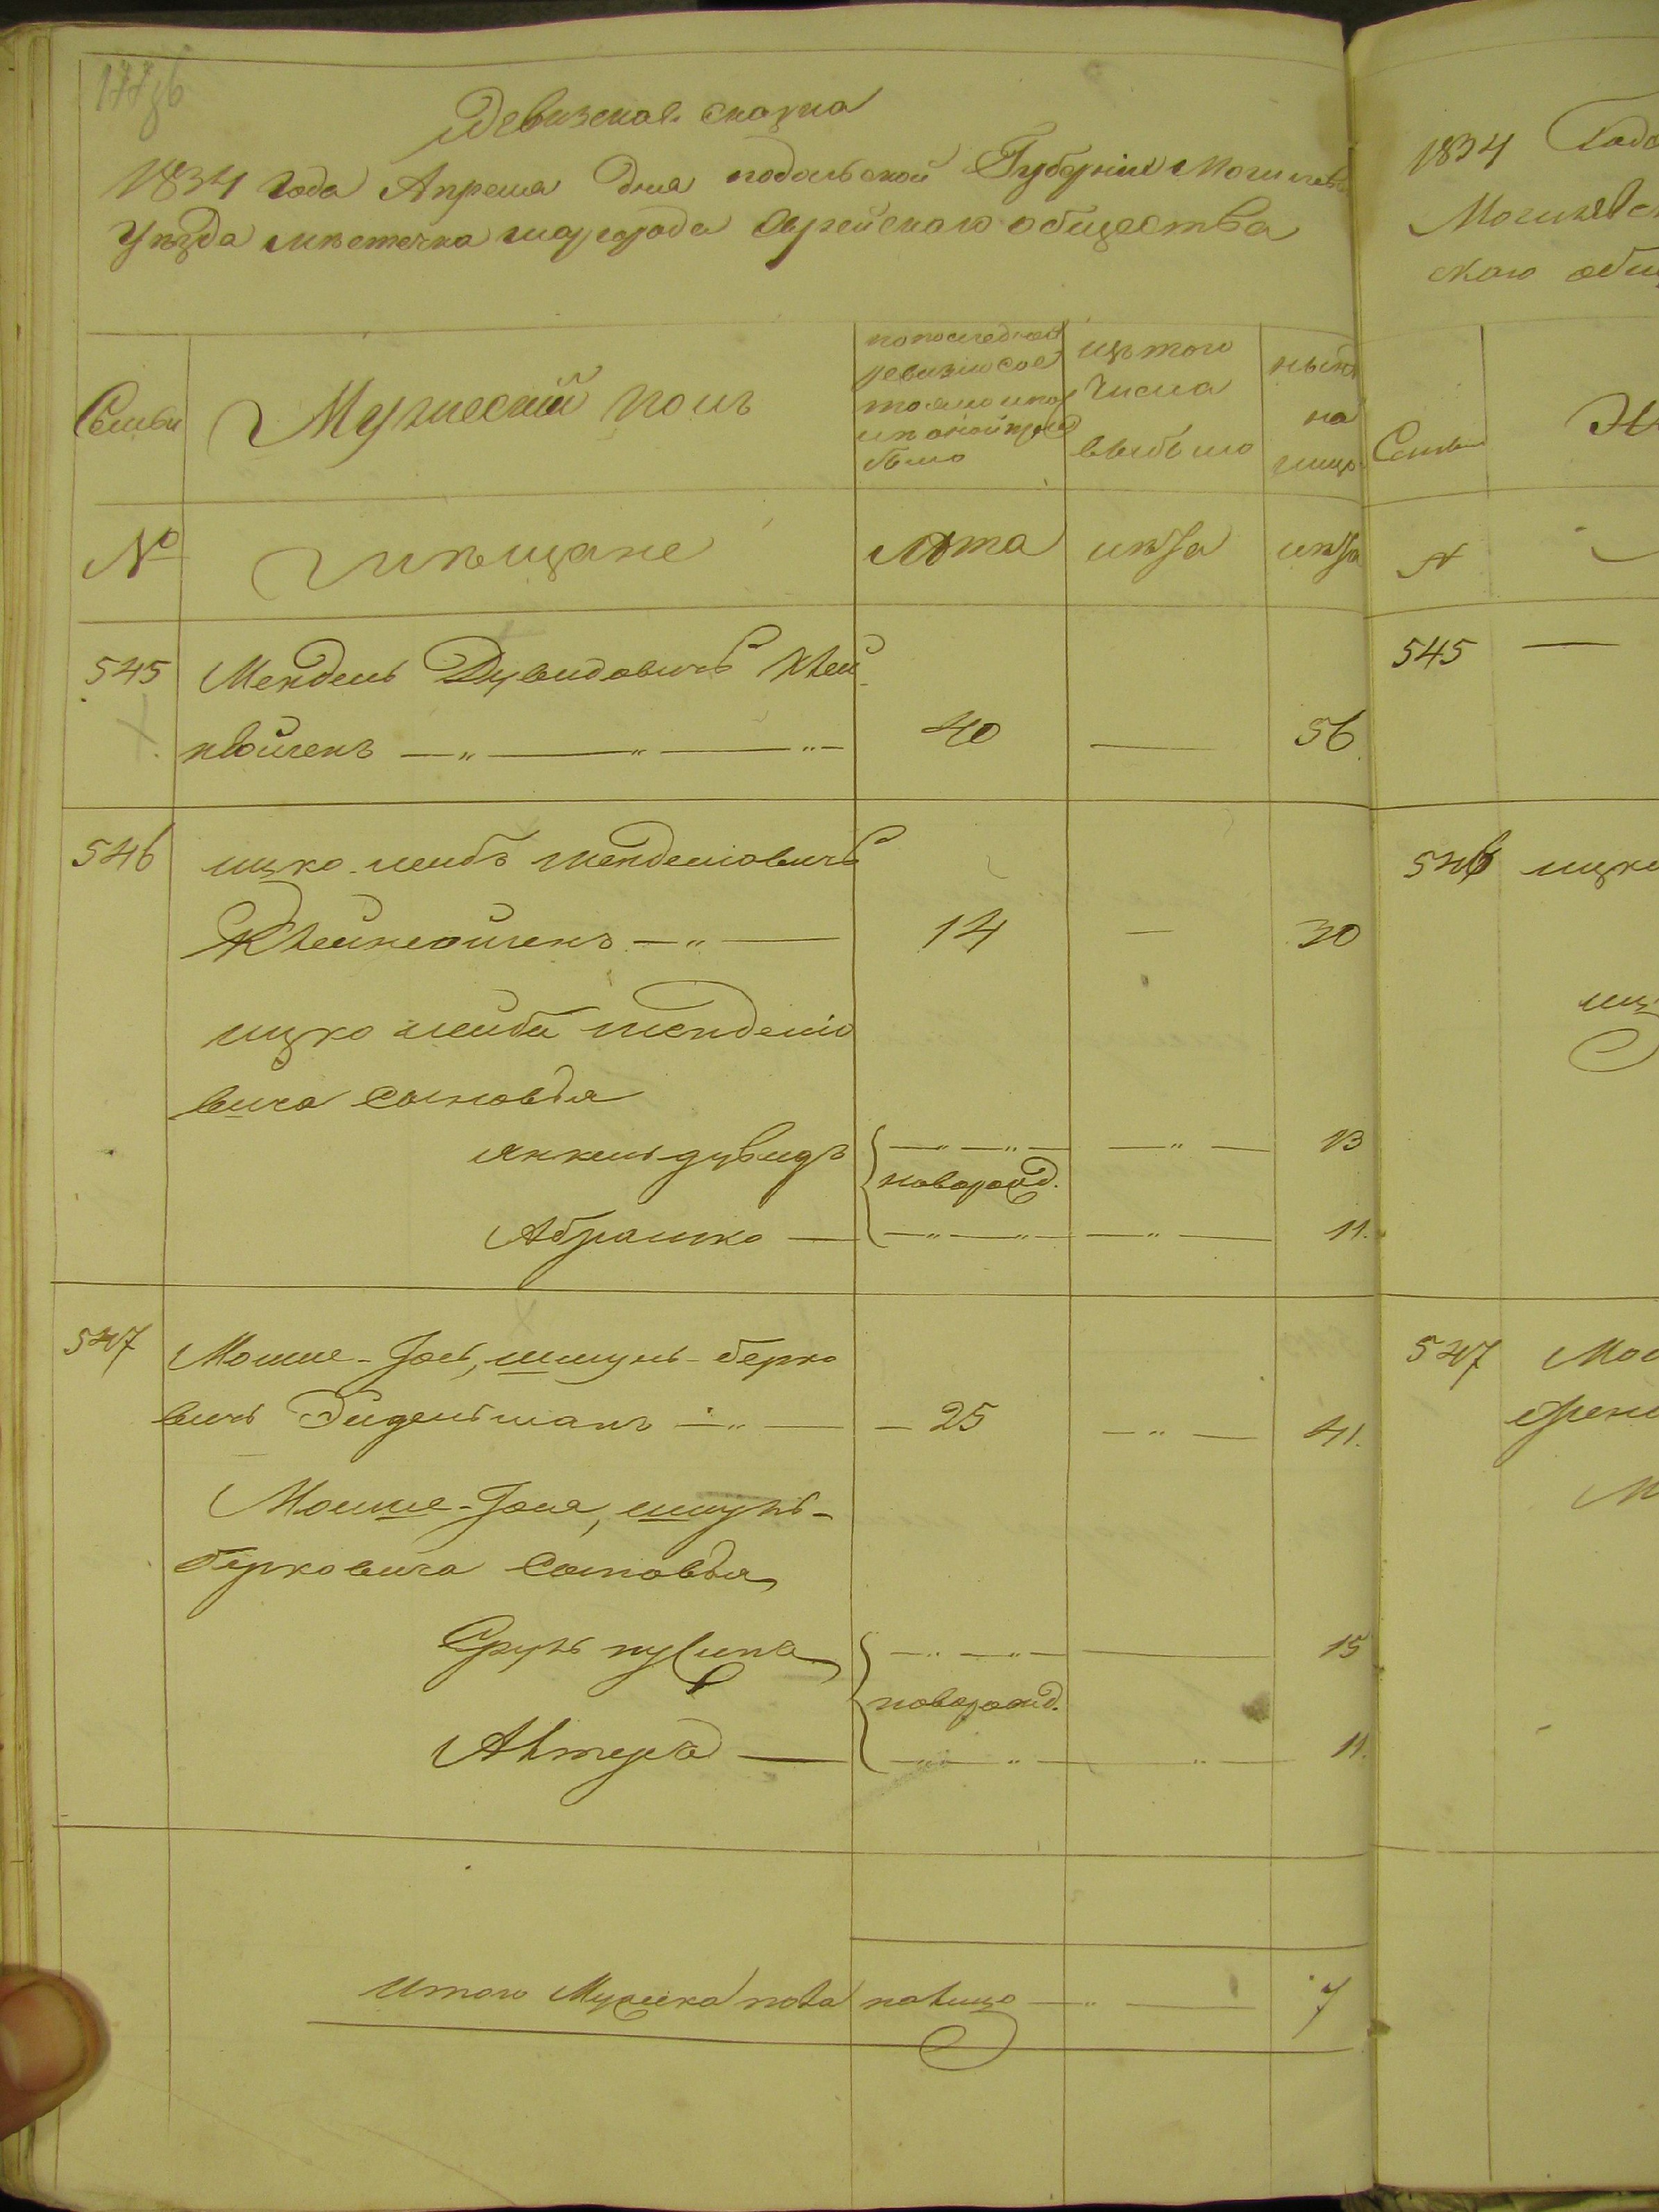 177 об
Ревизская сказка
1834 года Апреля дня подольской Губерніи Могилевс
уѣзда мѣстечка шаргорода Еврейскаго общества
Семьи
Мужескій полъ
по последней
ревизіи сос
тояло и по
лѣ оной при
было
изъ того
числа
выбыло
нынѣ
на
лицо
№
мѣщане
лѣта
лѣта
лѣта
545
Мендель Дувидовичъ Клей
нойгенъ
40
56.
546
ицко лейбъ Менделіовичъ
Клейнеойгенъ
14
30
ицко лейба Менделіо
вича сыновья
янкель дувидъ
13
новорожд.
Абрашко
11.
547
Мошше-Іось, шмуль-берко
вичъ Зидельманъ
25
41.
Мошше-Іося, шмуль-
берковича сыновья
Сруль
15
новорожд.
Алтеръ
11.
Итого Мужеска пола налицо
7
1834 Года
Могилевск
скаго общ
Семьи
№
545
546 ицко
иц
547 Мош
М